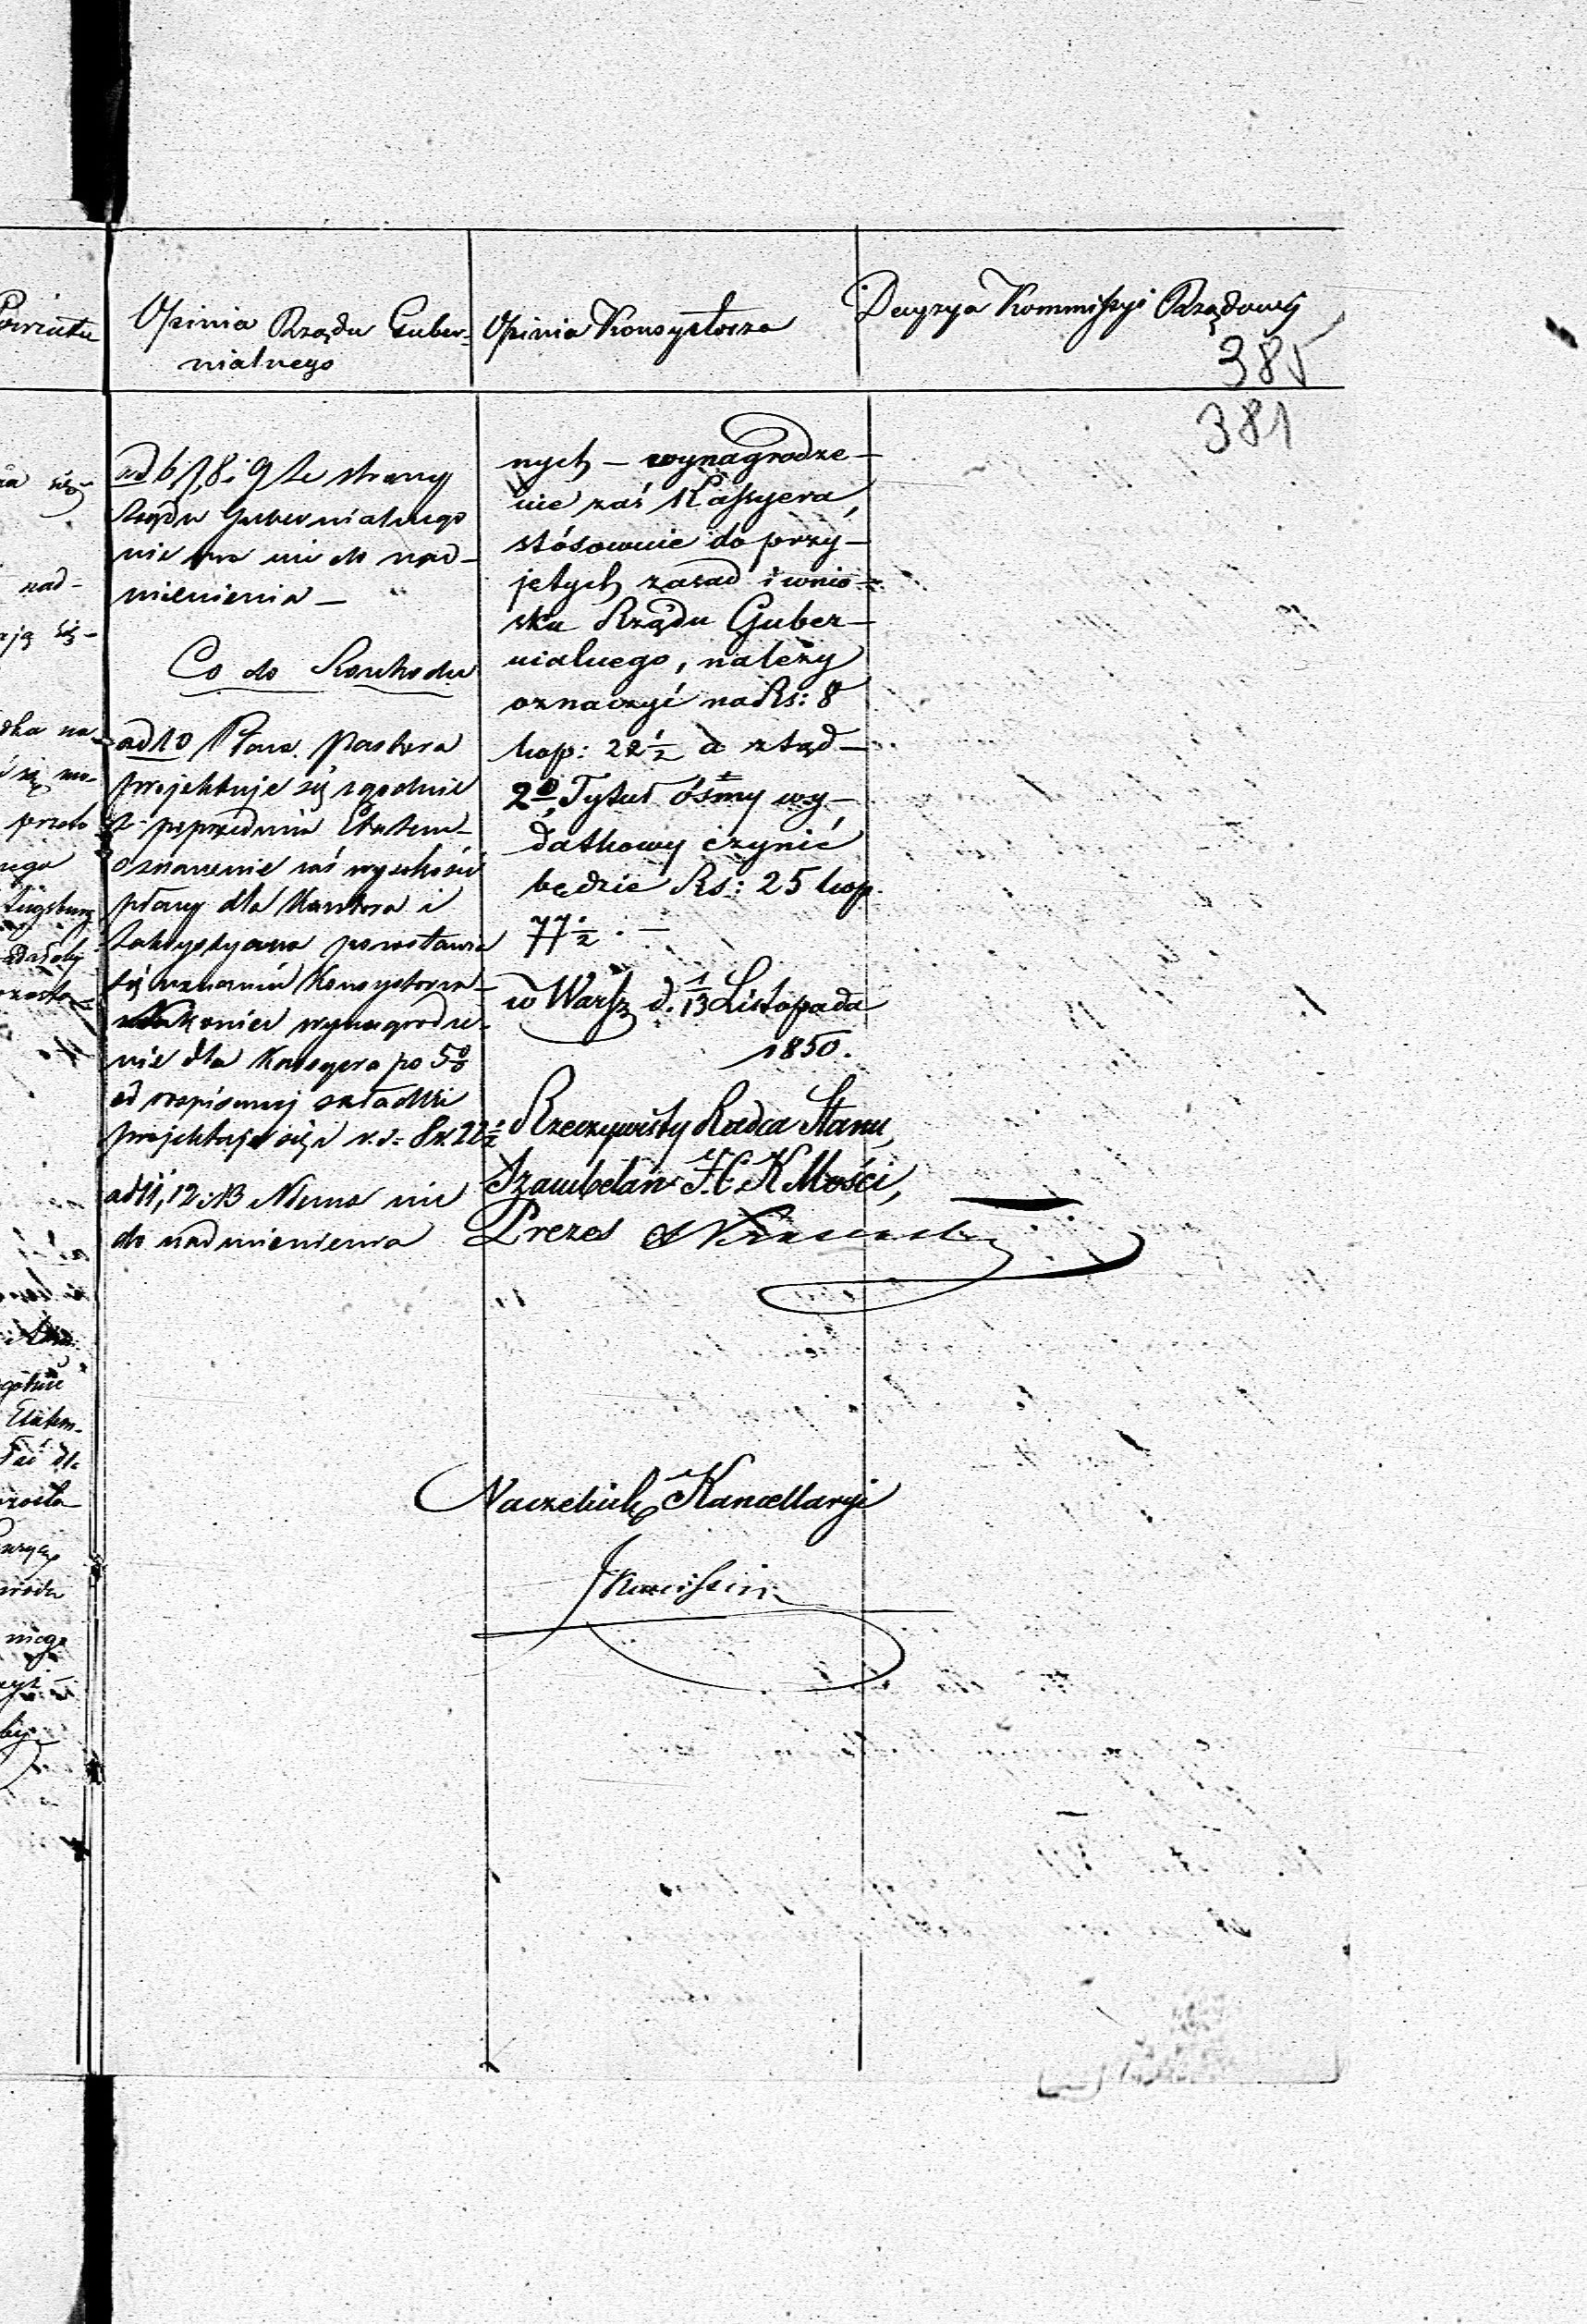 Powiatu
Opinia Rządu Guber-
nialnego
Opinia Konsystorza
Decyzya Kommissyi Rządowej
385
381
ad 6, 7, 8 i 9 Ze strony
Rządu Gubernialnego
nie ma nic do nad-
mienienia —
Co do Rozchodu
ad 10 Płaca Pastora
projektuje się zgodnie
z poprzednim Etatem —
oznaczenie zaś wysokości
płacy dla Kantora i
Zakrystyana pozostawia
się uznaniu Konsystorza —
Nakoniec wynagrodze-
nie dla Kassyera po 5%
od rozpisanej składki
projektuje się r. s. 8 k. 22½
ad 11, 12 i 13 Niema nic
do nadmienienia
nych — wynagrodze-
nie zaś Kassyera,
stósownie do przy-
jętych zasad i wnio-
sku Rządu Guber-
nialnego, należy
oznaczyć na Rs: 8
kop: 22½ a ztąd —
2º, Tytuł ósmy wy-
datkowy czynić
będzie Rs: 25 kop.
77½. —
w Warsz d. 1/13 Listopada
1850.
Rzeczywisty Radca Stanu,
Szambelan J. C. K. Mości,
Prezes
Naczelnik Kancellaryi
nad-
przeto
Augsburg